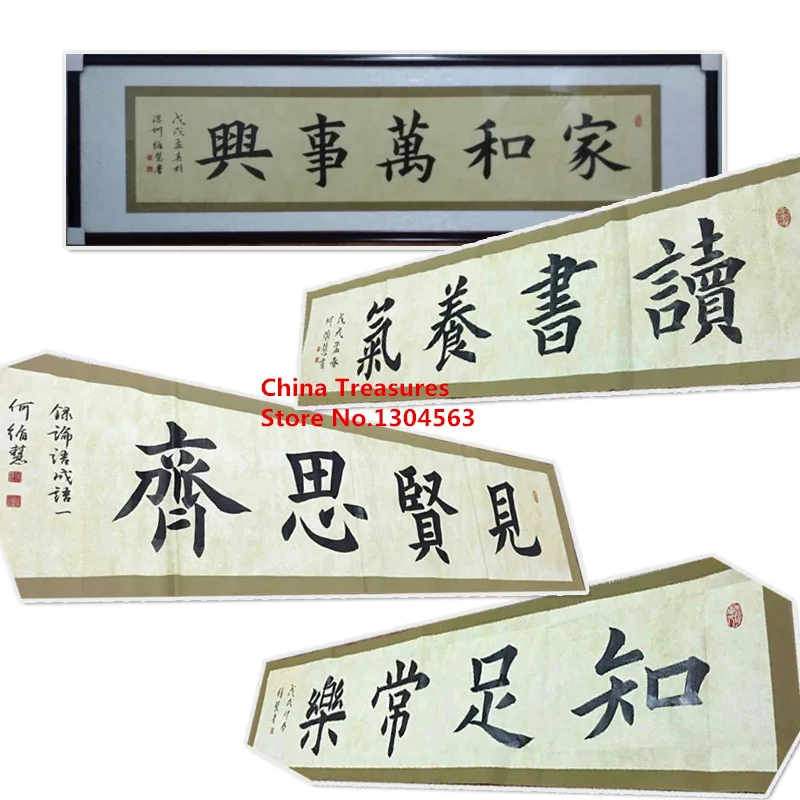 家和萬事興
戊戌孟春於
深圳循慧書
讀書養氣
戊戌孟春
何循慧書
China Treasures
Store No.1304563
見賢思齊
錄論語成語一
何循慧
知足常樂